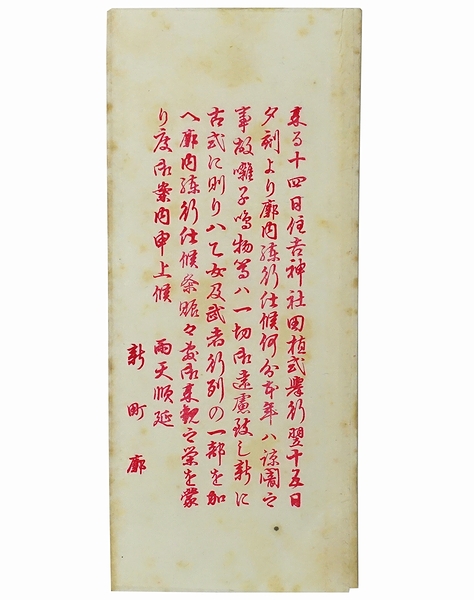 来る十四日住吉神社田植式挙行翌十五日
夕刻より廓内練行仕候何分本年ハ諒闇之
事故囃子鳴物等ハ一切御遠慮致し新に
古式に則り八乙女及武者行列の一部を加
へ廓内練行仕候条賑々敷御来観之栄を蒙
り度御案内申上候
雨天順延
新町廓